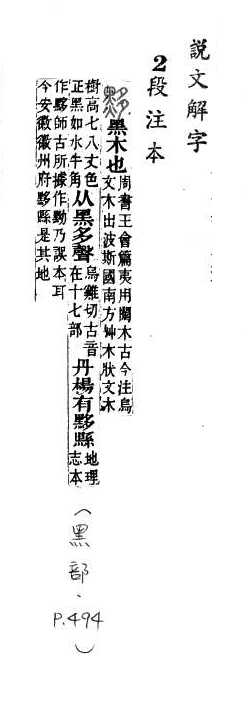 說文解字
2段注本
黟 黑木也
周書王會篇夷用䦘木古今注烏
文木出波斯國南方艸木狀文木
樹高七八丈色
正黑如水牛角
从黑多聲
烏雞切古音
在十七部
丹楊有黟縣
地理
志本
作黟師古所據作黝乃誤本耳
今安徽徽州府黟縣是其地
(黑部、P.494)